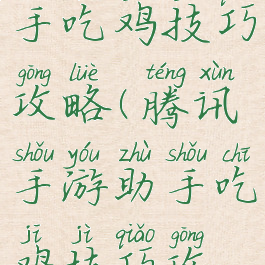 手吃鸡技巧
gōng lüè téng xùn
攻略(腾讯
shǒu yóu zhù shǒu chī
手游助手吃
jī jì qiǎo gōng
鸡技巧攻